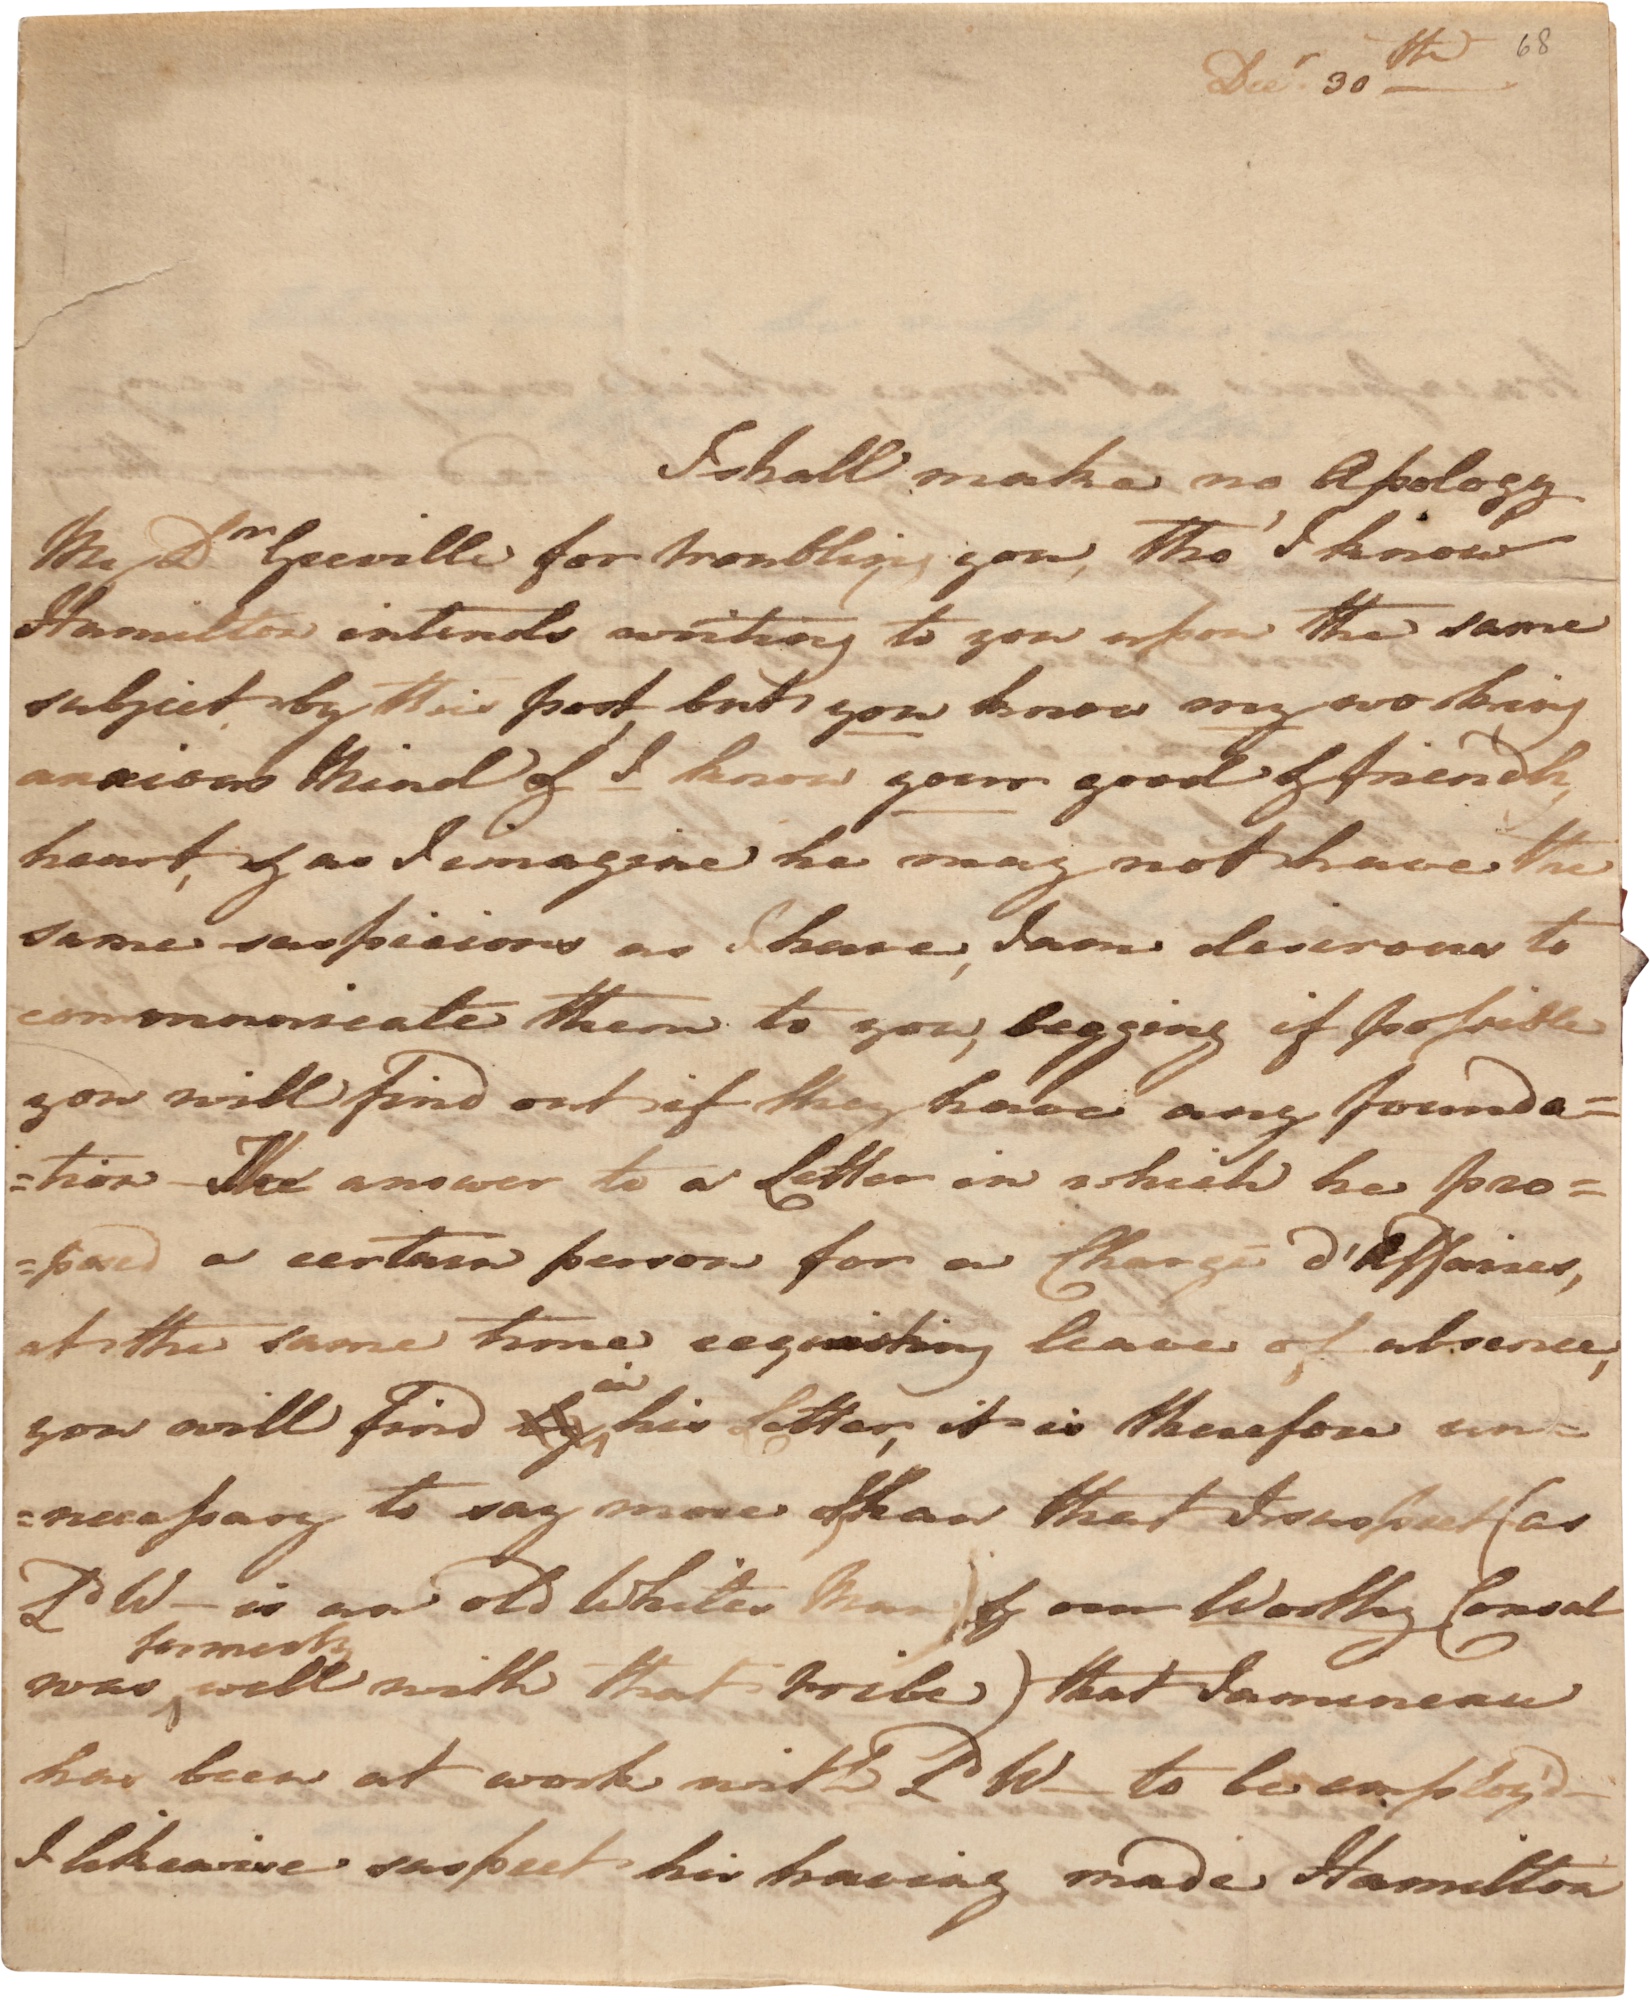 68
Decr. 30th
I shall make no Apology
My Dr Greville for troubling you, tho' I know
Hamilton intends writing to you upon the same
subject by this post, but you know my working
anxious Mind & I know your good & friendly
heart, & as I imagine he may not have the
same suspicions as I have, I am desirous to
communicate them to you, begging if possible
you will find out if they have any founda=
=tion - The answer to a Letter in which he pro=
=posed a certain person for a Chargé d'Affaires,
at the same time requesting leave of absence,
you will find by in his Letter, it is therefore un=
=necessary to say more than that I suspect (as
Ld W— is an old Whites Man & our Worthy Consul
was formerly well with that tribe) that Jamineau
has been at work with Ld W— to be employ'd—
I likewise suspect his having made Hamilton